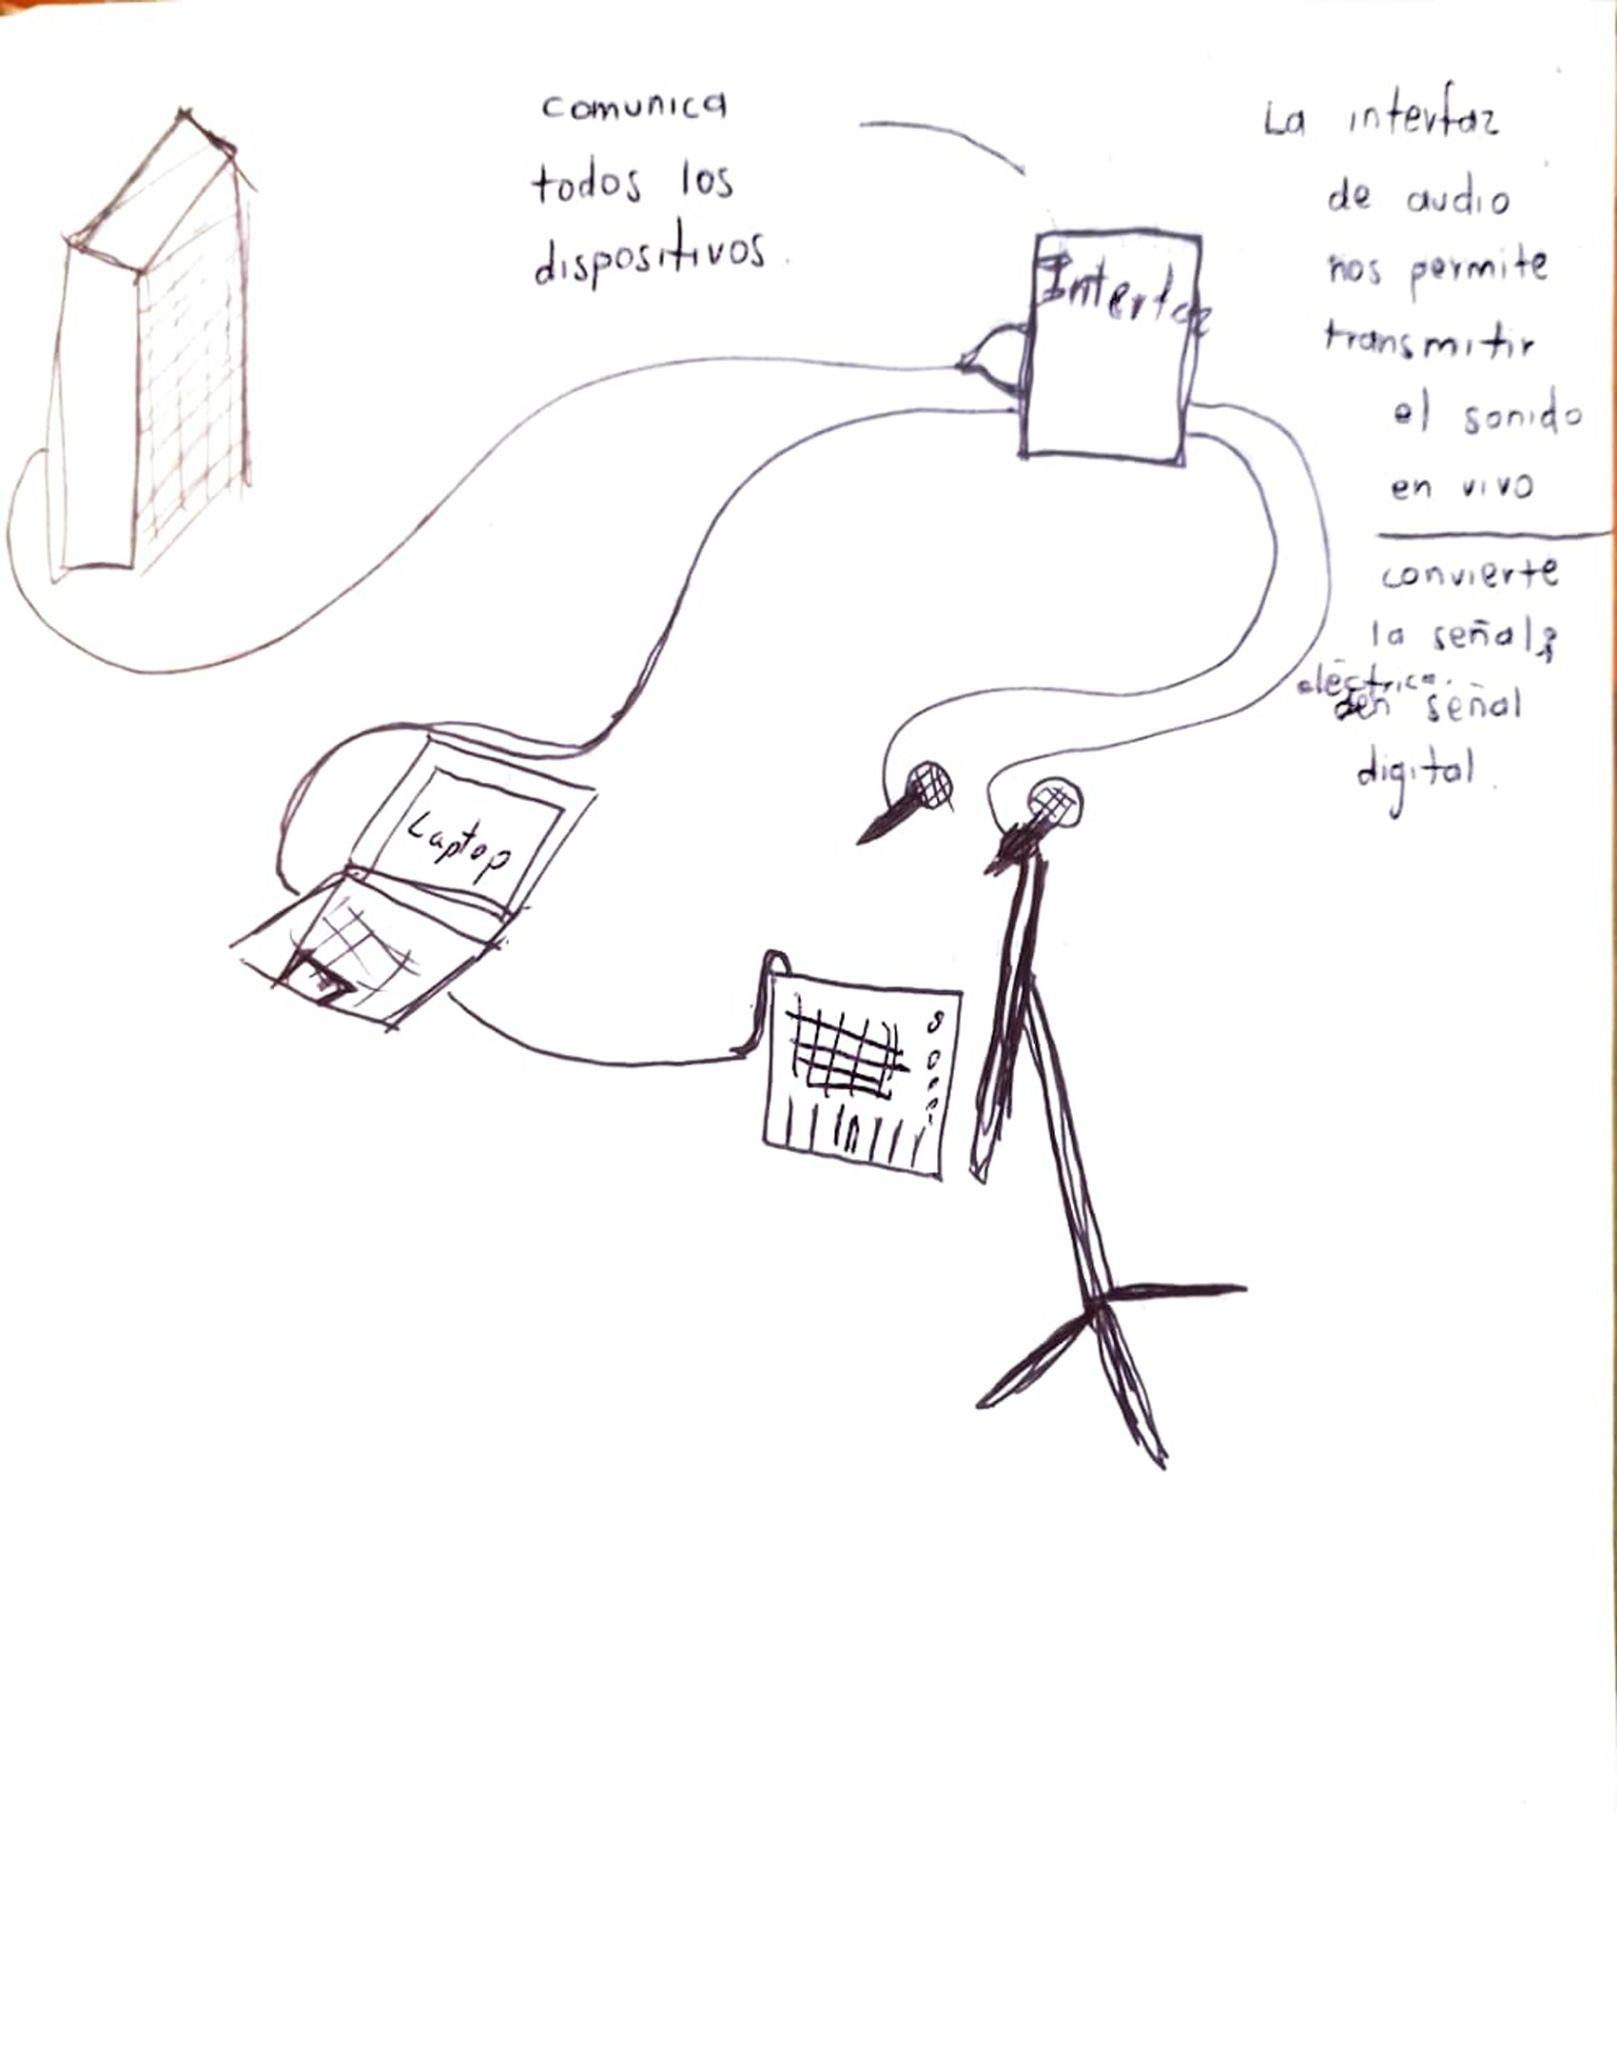 comunica
todos los
dispositivos.
Interfaz
La interfaz
de audio
nos permite
transmitir
el sonido
en vivo
convierte
la señal
eléctrica.
en señal
digital.
Laptop